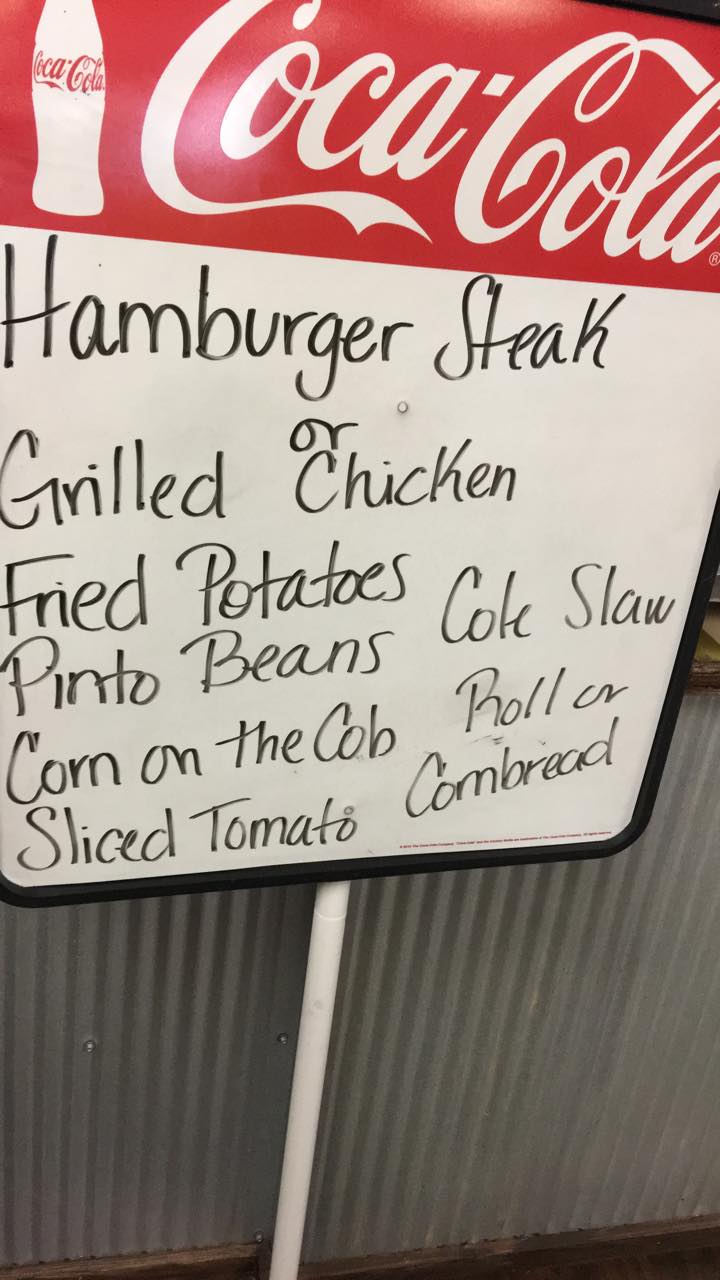 Coca-Cola
Coca-Cola®
Hamburger Steak
or
Grilled Chicken
Fried Potatoes
Cole Slaw
Pinto Beans
Roll or
Corn on the Cob
Cornbread
Sliced Tomato